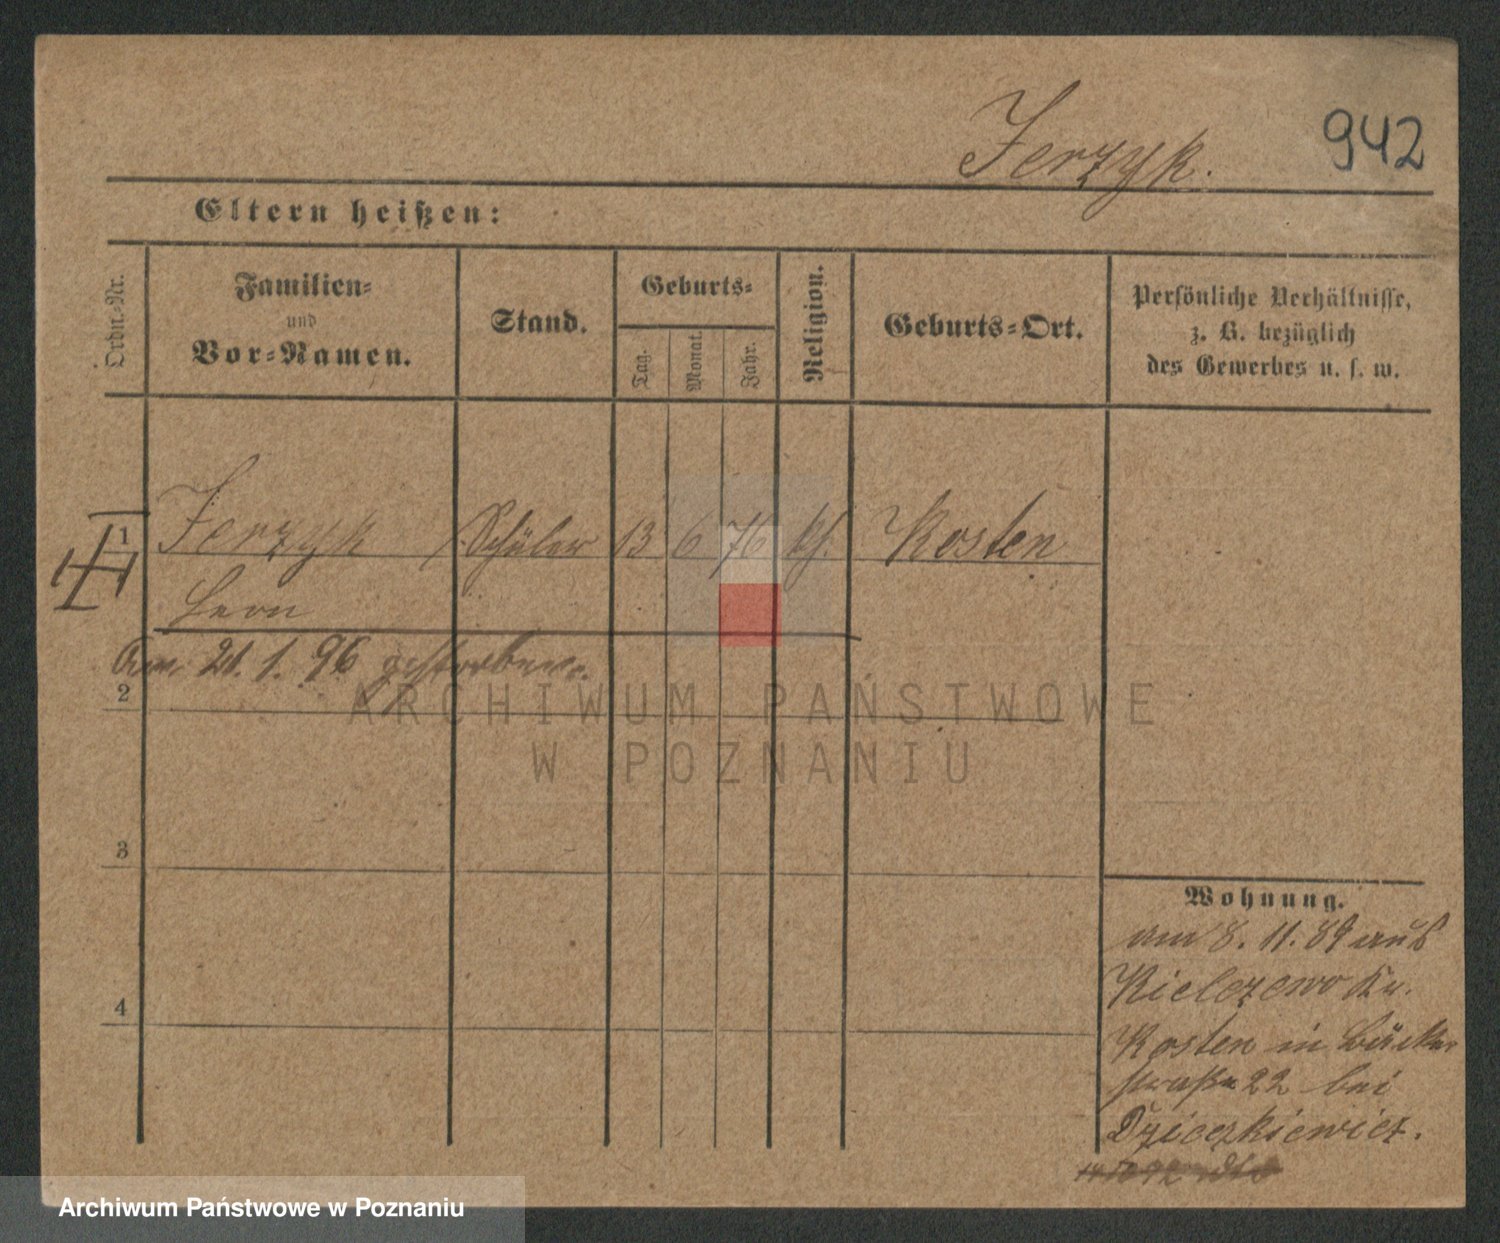 Jerzyk.
942
Eltern heißen:
Ordn.-Nr.
Familien-
und
Vor-Namen.
Stand.
Geburts-
Tag.
Monat.
Jahr.
Religion.
Geburts-Ort.
Persönliche Verhältnisse,
z. B. bezüglich
des Gewerbes u. s. w.
1
Jerzyk Schüler 13 6 76 kth. Kosten
Leon
Am 21. 1. 96 gestorben.
2
ARCHIWUM PAŃSTWOWE
W POZNANIU
3
4
Wohnung.
am 8. 11. 89 aus
Kielczewo Kr.
Kosten in Bäcker
straße 22 bei
Dzieczkiewicz.
Archiwum Państwowe w Poznaniu